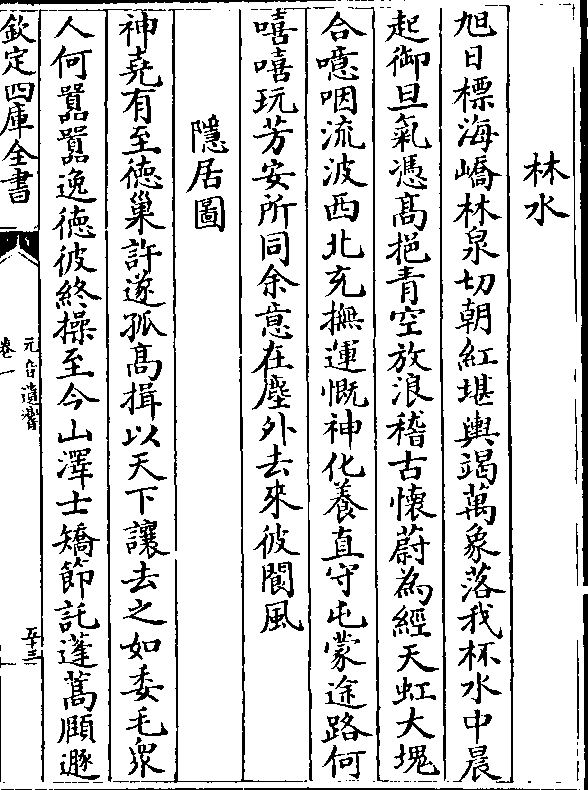 林水
旭日標海嶠林泉切朝紅堪輿竭萬象落我杯水中晨
起御旦氣憑髙挹青空放浪稽古懷蔚為經天虹大塊
合噫咽流波西北充撫運慨神化養直守屯蒙途路何
嘻嘻玩芳安所同余意在塵外去來彼閬風
隱居圖
神堯有至徳巢許遂孤髙揖以天下讓去之如委毛衆
人何囂囂逸徳彼終操至今山澤士矯節託蓬蒿頋遯
欽定四庫全書
元音遺響
卷一
五十三